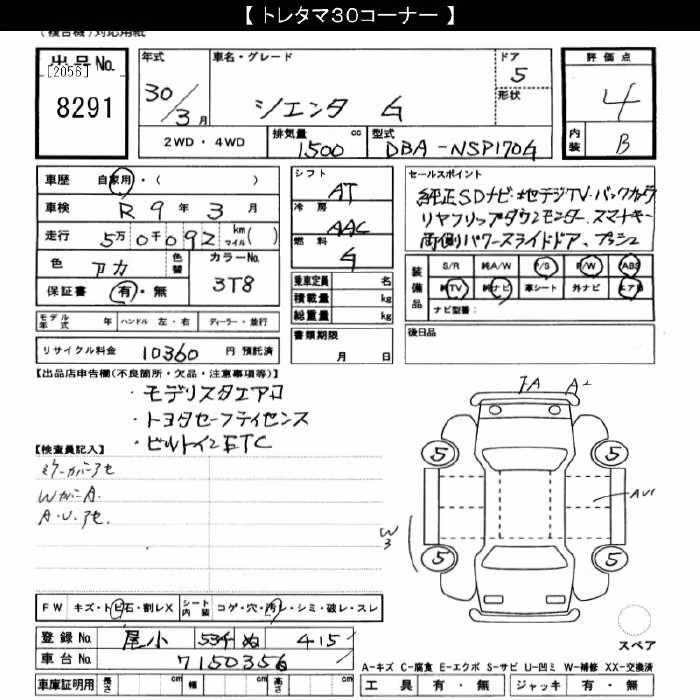 【 トレタマ30コーナー 】
出品No.
[2056]
8291
年式
30/3月
車名・グレード
シエンタ G
ドア
5
形状
評価点
4
内装
B
2WD・4WD
排気量 cc
1500
型式
DBA-NSP170G
車歴 自家用・( )
車検 R 9年 3月
走行 5万0千092 km マイル( )
色 アカ 色替
カラーNo. 3T8
保証書 有・無
シフト AT
冷房 AAC
燃料 G
乗車定員 名
積載量 kg
総重量 kg
セールスポイント
純正SDナビ・地デジTV・バックカメラ
リヤフリップダウンモニター スマートキー
両側パワースライドドア、プッシュ
装備品
S/R 純A/W P/S P/W ABS
純TV 純ナビ 革シート 外ナビ エアB
ナビ型番:
モデル年式 年 ハンドル 左・右 ディーラー・並行
書類期限
月 日
後日品
リサイクル料金 10360 円 預託済
【出品店申告欄(不良箇所・欠品・注意事項等)】
・モデリスタエアロ
・トヨタセーフティセンス
・ビルトインETC
【検査員記入】
Wカバー A.
A・U・アセ
A
W3
5 5
5 5
スペア
FW キズ・トビ石・割レX シート内装 コゲ・穴・汚レ・シミ・破レ・スレ
登録No. 尾小 534 ぬ 415
車台No. 7150356
車庫証明用 長さ cm 幅 cm 高さ cm
A-キズ C-腐食 E-エクボ S-サビ U-凹ミ W-補修 XX-交換済
工具 有・無 ジャッキ 有・無